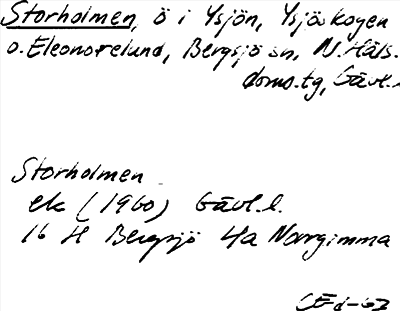 Storholmen, ö i Ysjön, Ysjöskogen
o. Eleonorelund, Bergsjö sn, N. Häls.
doms.tg, Gävl.l
Storholmen
ek (1960) Gävl.l.
16 H Bergsjö 4a Norrgimma